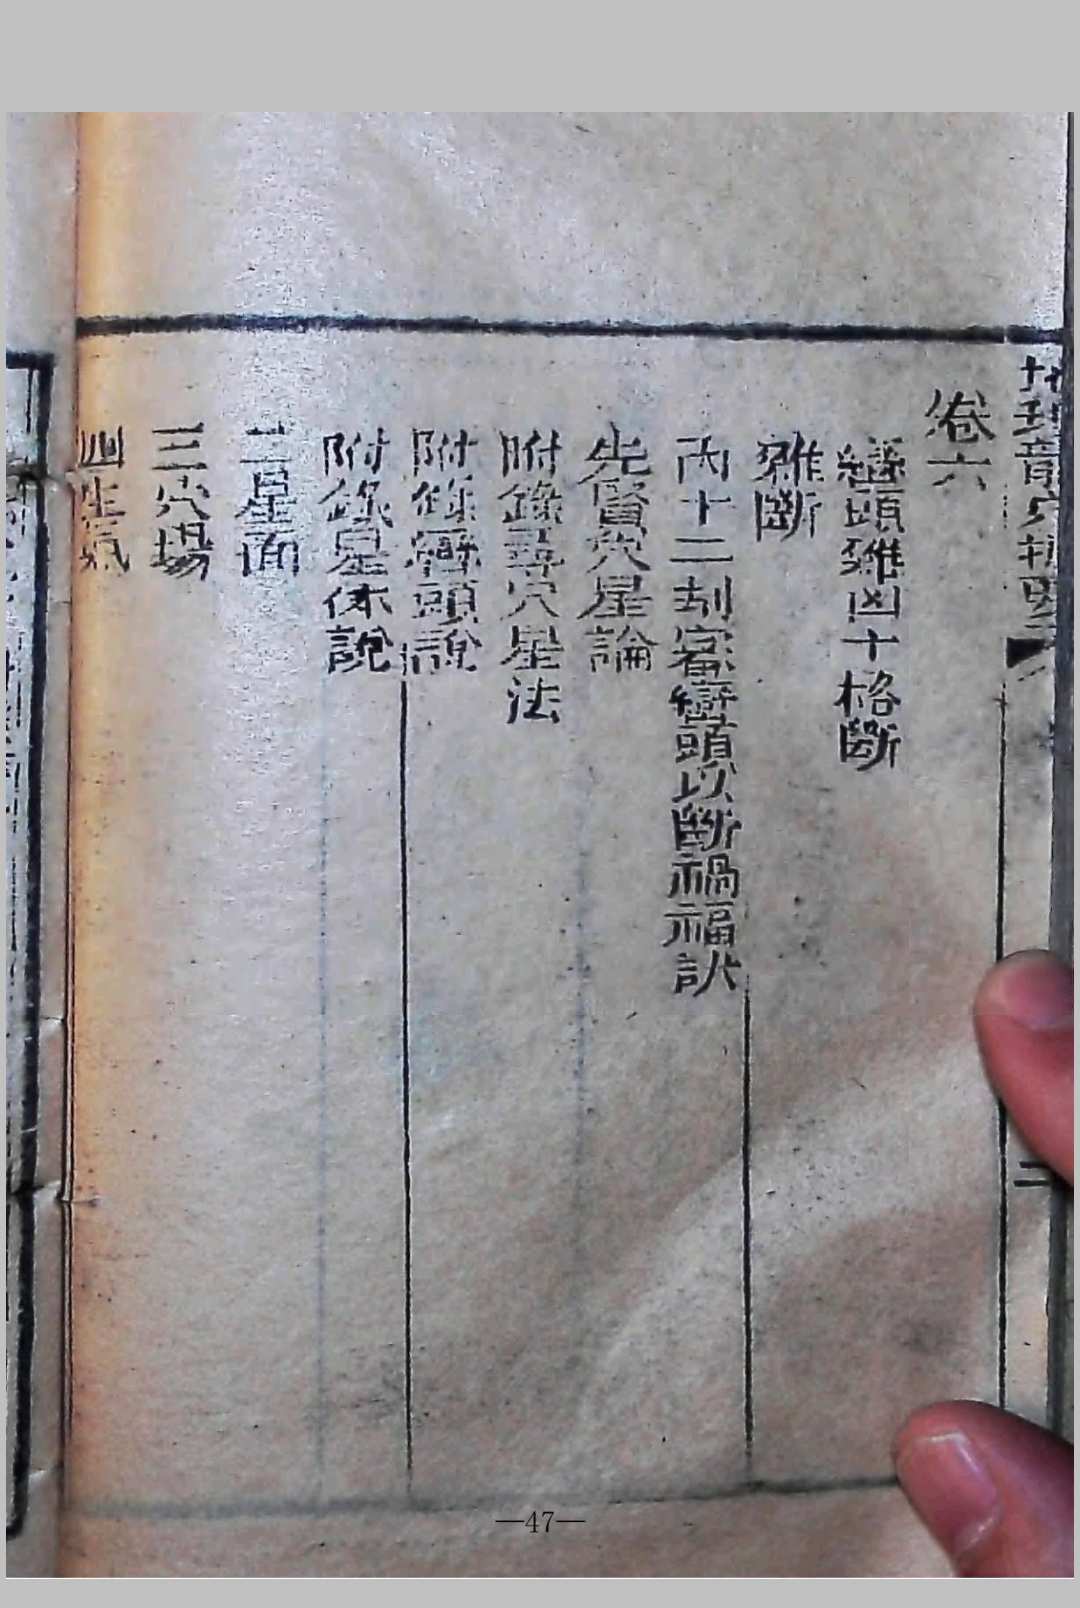 地理龍穴
二
卷六
巒頭雜凶十格斷
雜斷
丙十二刦審巒頭以斷禍福訣
先賢穴星論
附錄尋穴星法
附錄巒頭說
附錄星体說
二星面
三穴場
四生氣
—47—